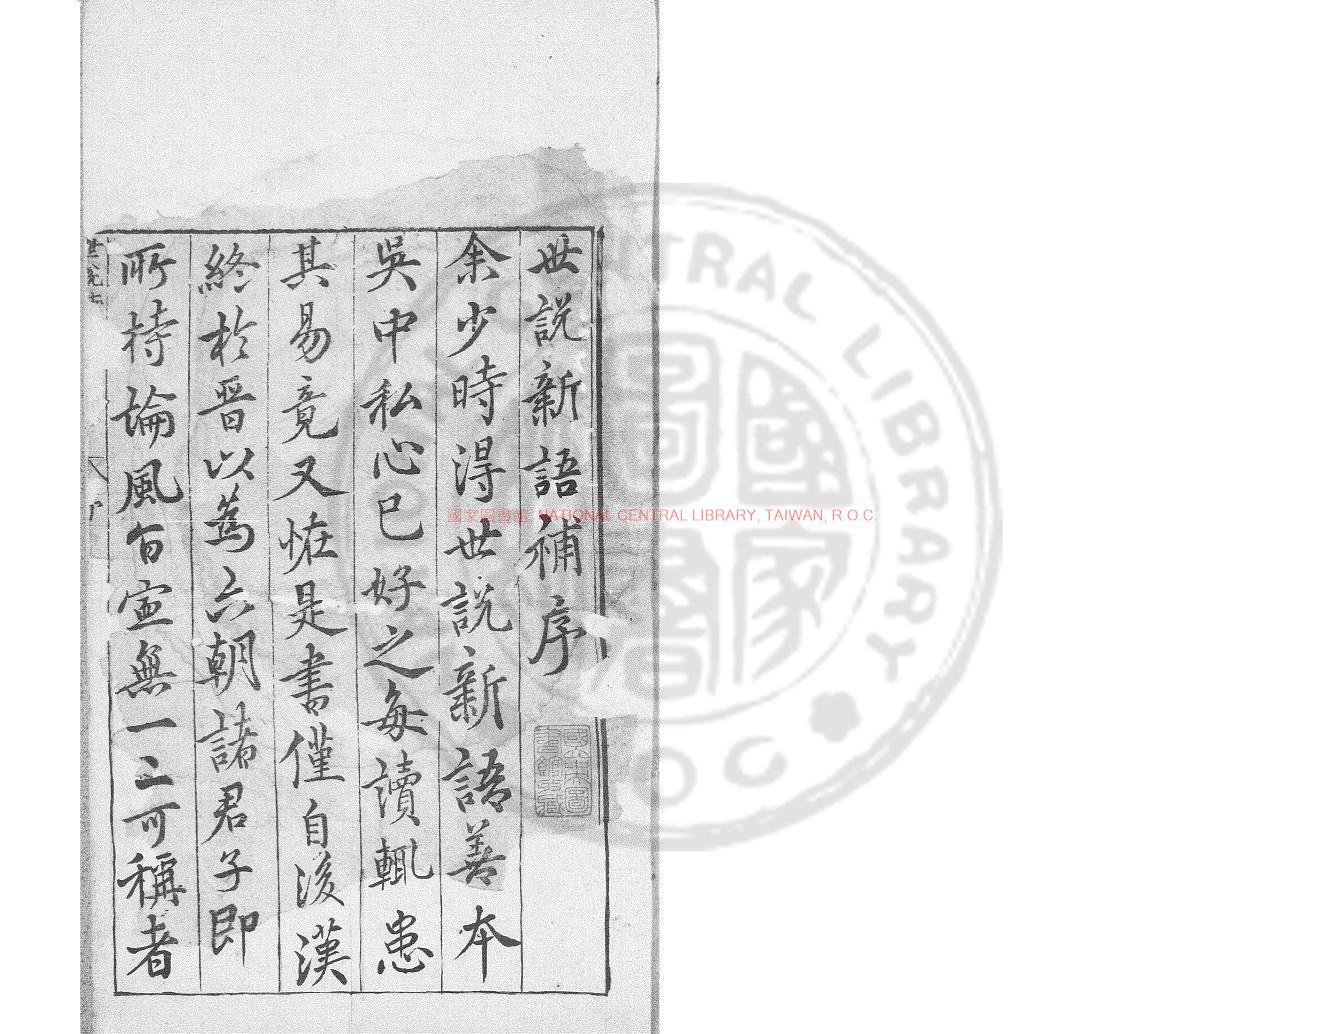 世說新語補序
余少時得世說新語善本
吳中私心已好之每讀輒患
其易竟又怪是書僅自後漢
終於晉以為六朝諸君子即
所持論風旨寧無一二可稱者
世說
國家圖書館, NATIONAL CENTRAL LIBRARY, TAIWAN, R.O.C.
CENTRAL LIBRARY